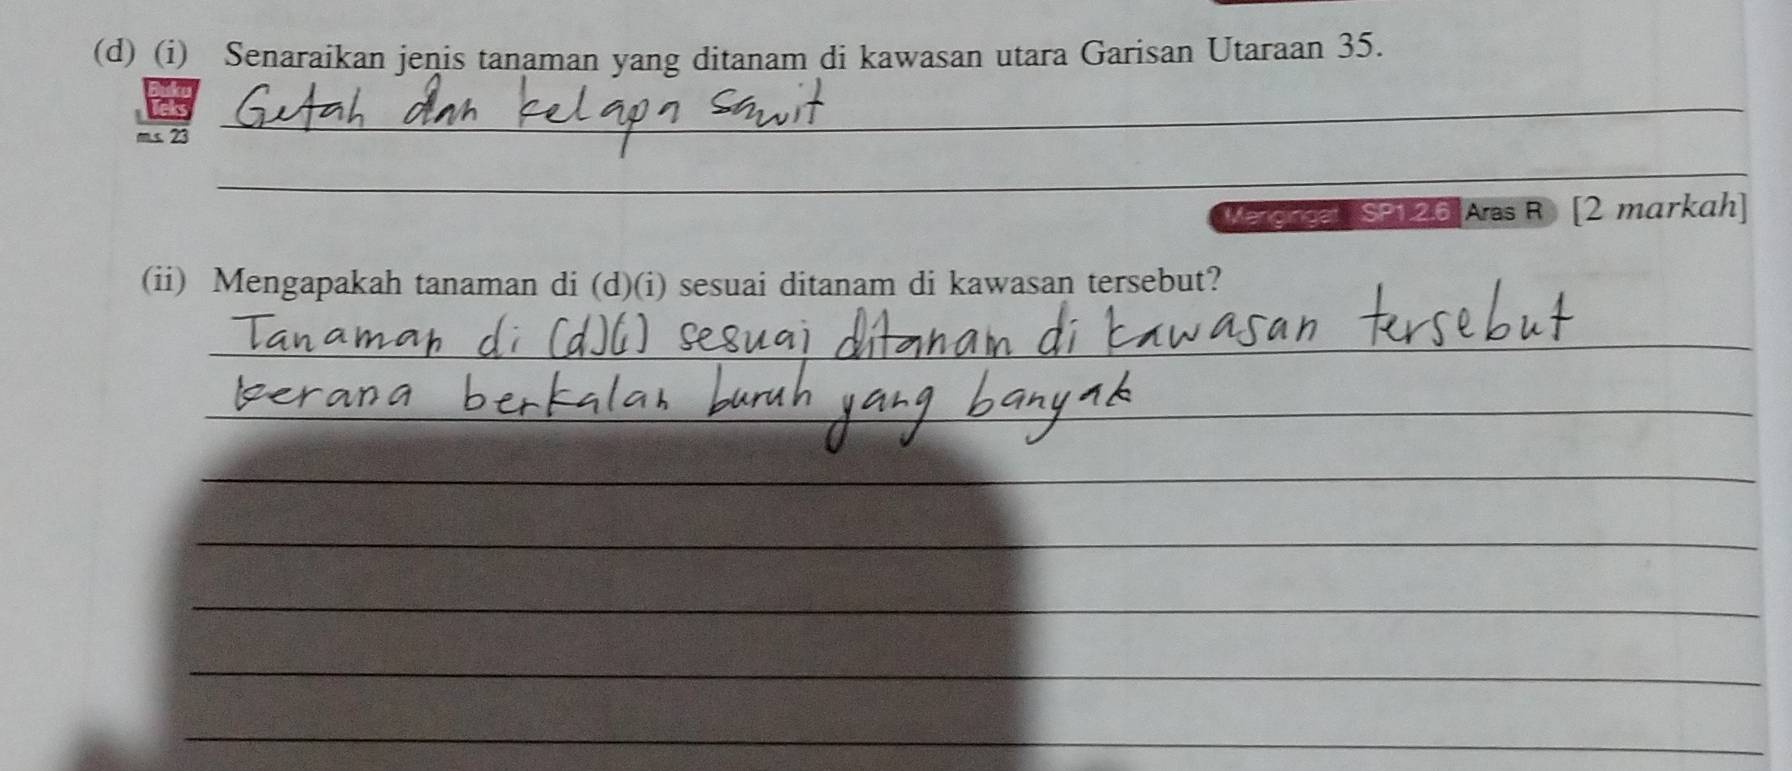 (d) (i) Senaraikan jenis tanaman yang ditanam di kawasan utara Garisan Utaraan 35.
Buku
Teks
m.s. 23
Getah dan kelapa sawit
Mengingat SP1.2.6 Aras R [2 markah]
(ii) Mengapakah tanaman di (d)(i) sesuai ditanam di kawasan tersebut?
Tanaman di (d)(i) sesuai ditanam di kawasan tersebut
kerana berkalan buruh yang banyak